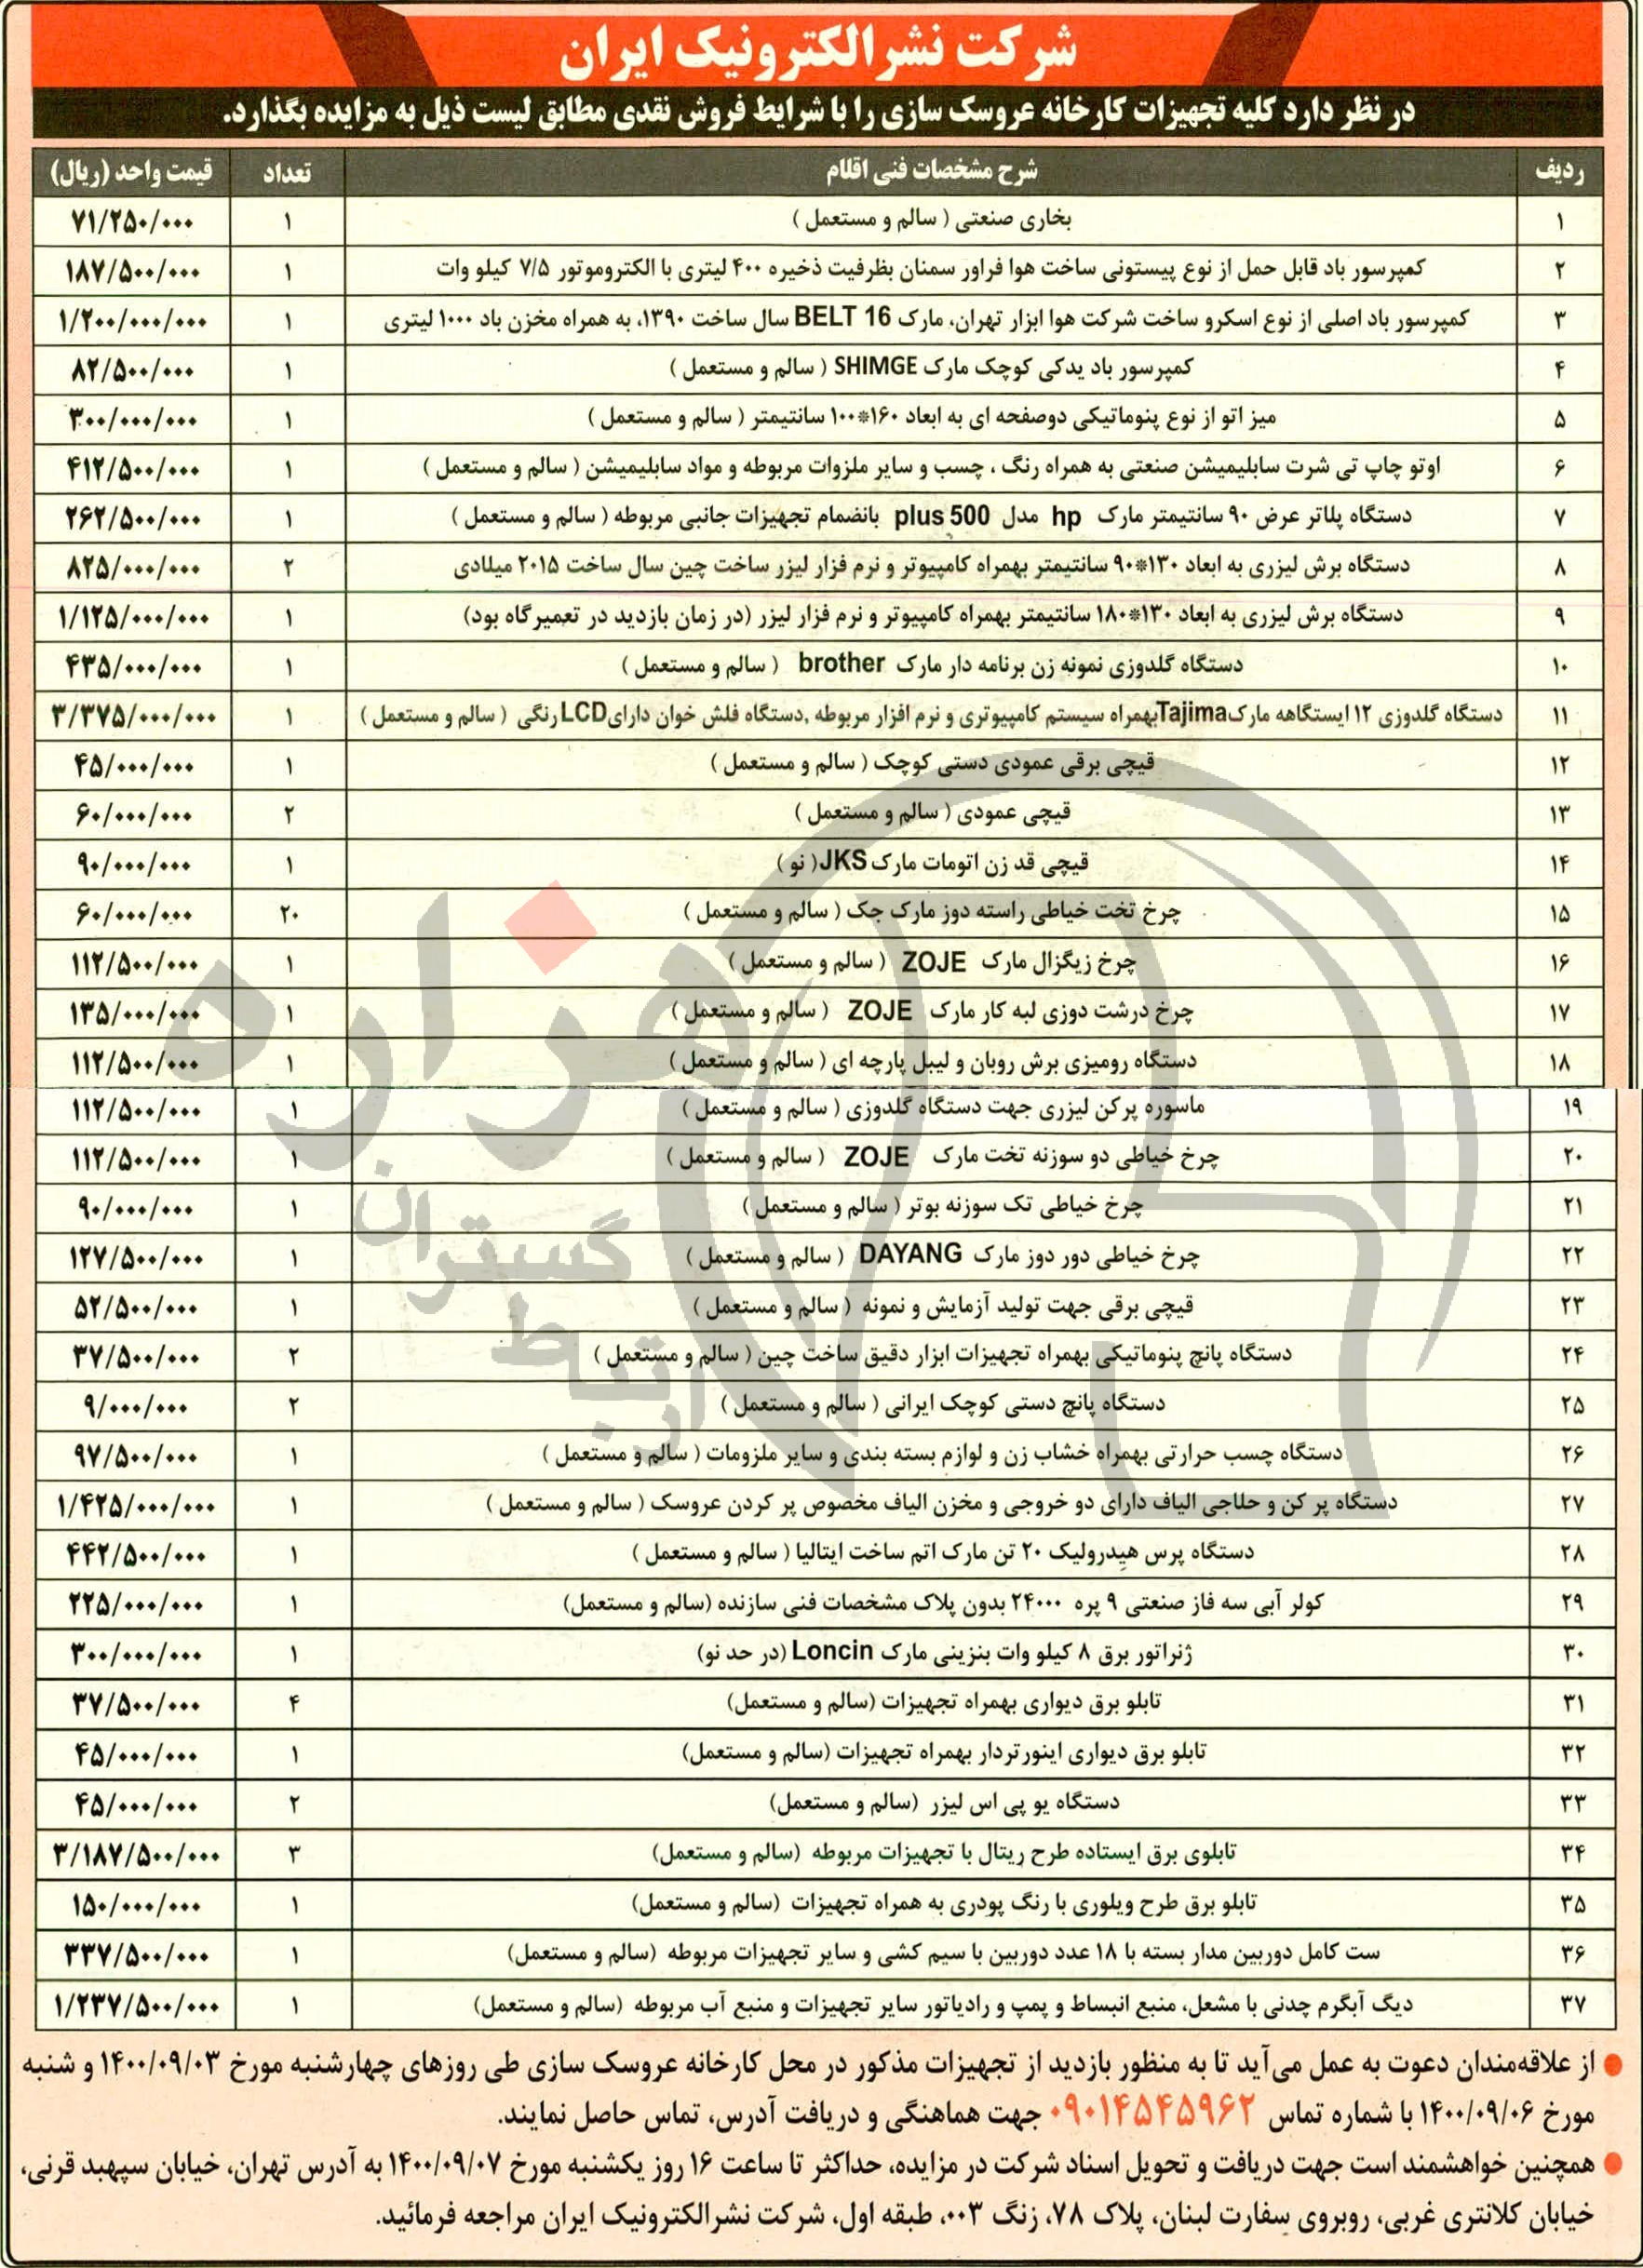 شرکت نشر الکترونیک ایران
در نظر دارد کلیه تجهیزات کارخانه عروسک سازی را با شرایط فروش نقدی مطابق لیست ذیل به مزایده بگذارد.
ردیف شرح مشخصات فنی اقلام تعداد قیمت واحد (ریال)
۱ بخاری صنعتی ( سالم و مستعمل ) ۱ ۷۱/۲۵۰/۰۰۰
۲ کمپرسور باد قابل حمل از نوع پیستونی ساخت هوا فراور سمنان بظرفیت ذخیره ۴۰۰ لیتری با الکتروموتور ۷/۵ کیلو وات ۱ ۱۸۷/۵۰۰/۰۰۰
۳ کمپرسور باد اصلی از نوع اسکرو ساخت شرکت هوا ابزار تهران، مارک BELT 16 سال ساخت ۱۳۹۰، به همراه مخزن باد ۱۰۰۰ لیتری ۱ ۱/۲۰۰/۰۰۰/۰۰۰
۴ کمپرسور باد یدکی کوچک مارک SHIMGE ( سالم و مستعمل ) ۱ ۸۲/۵۰۰/۰۰۰
۵ میز اتو از نوع پنوماتیکی دوصفحه ای به ابعاد ۱۶۰*۱۰۰ سانتیمتر ( سالم و مستعمل ) ۱ ۳۰۰/۰۰۰/۰۰۰
۶ اوتو چاپ تی شرت سابلیمیشن صنعتی به همراه رنگ ، چسب و سایر ملزوات مربوطه و مواد سابلیمیشن ( سالم و مستعمل ) ۱ ۴۱۲/۵۰۰/۰۰۰
۷ دستگاه پلاتر عرض ۹۰ سانتیمتر مارک hp مدل plus 500 بانضمام تجهیزات جانبی مربوطه ( سالم و مستعمل ) ۱ ۲۶۲/۵۰۰/۰۰۰
۸ دستگاه برش لیزری به ابعاد ۱۳۰*۹۰ سانتیمتر بهمراه کامپیوتر و نرم فزار لیزر ساخت چین سال ساخت ۲۰۱۵ میلادی ۲ ۸۲۵/۰۰۰/۰۰۰
۹ دستگاه برش لیزری به ابعاد ۱۳۰*۱۸۰ سانتیمتر بهمراه کامپیوتر و نرم فزار لیزر (در زمان بازدید در تعمیرگاه بود) ۱ ۱/۱۲۵/۰۰۰/۰۰۰
۱۰ دستگاه گلدوزی نمونه زن برنامه دار مارک brother ( سالم و مستعمل ) ۱ ۴۳۵/۰۰۰/۰۰۰
۱۱ دستگاه گلدوزی ۱۲ ایستگاهه مارک Tajima بهمراه سیستم کامپیوتری و نرم افزار مربوطه ,دستگاه فلش خوان دارای LCD رنگی ( سالم و مستعمل ) ۱ ۳/۳۷۵/۰۰۰/۰۰۰
۱۲ قیچی برقی عمودی دستی کوچک ( سالم و مستعمل ) ۱ ۴۵/۰۰۰/۰۰۰
۱۳ قیچی عمودی ( سالم و مستعمل ) ۲ ۶۰/۰۰۰/۰۰۰
۱۴ قیچی قد زن اتومات مارک JKS( نو ) ۱ ۹۰/۰۰۰/۰۰۰
۱۵ چرخ تخت خیاطی راسته دوز مارک جک ( سالم و مستعمل ) ۲۰ ۶۰/۰۰۰/۰۰۰
۱۶ چرخ زیگزال مارک ZOJE ( سالم و مستعمل ) ۱ ۱۱۲/۵۰۰/۰۰۰
۱۷ چرخ درشت دوزی لبه کار مارک ZOJE ( سالم و مستعمل ) ۱ ۱۳۵/۰۰۰/۰۰۰
۱۸ دستگاه رومیزی برش روبان و لیبل پارچه ای ( سالم و مستعمل ) ۱ ۱۱۲/۵۰۰/۰۰۰
۱۹ ماسوره پرکن لیزری جهت دستگاه گلدوزی ( سالم و مستعمل ) ۱ ۱۱۲/۵۰۰/۰۰۰
۲۰ چرخ خیاطی دو سوزنه تخت مارک ZOJE ( سالم و مستعمل ) ۱ ۱۱۲/۵۰۰/۰۰۰
۲۱ چرخ خیاطی تک سوزنه بوتر ( سالم و مستعمل ) ۱ ۹۰/۰۰۰/۰۰۰
۲۲ چرخ خیاطی دور دوز مارک DAYANG ( سالم و مستعمل ) ۱ ۱۲۷/۵۰۰/۰۰۰
۲۳ قیچی برقی جهت تولید آزمایش و نمونه ( سالم و مستعمل ) ۱ ۵۲/۵۰۰/۰۰۰
۲۴ دستگاه پانچ پنوماتیکی بهمراه تجهیزات ابزار دقیق ساخت چین ( سالم و مستعمل ) ۲ ۳۷/۵۰۰/۰۰۰
۲۵ دستگاه پانچ دستی کوچک ایرانی ( سالم و مستعمل ) ۲ ۹/۰۰۰/۰۰۰
۲۶ دستگاه چسب حرارتی بهمراه خشاب زن و لوازم بسته بندی و سایر ملزومات ( سالم و مستعمل ) ۱ ۹۷/۵۰۰/۰۰۰
۲۷ دستگاه پر کن و حلاجی الیاف دارای دو خروجی و مخزن الیاف مخصوص پر کردن عروسک ( سالم و مستعمل ) ۱ ۱/۴۲۵/۰۰۰/۰۰۰
۲۸ دستگاه پرس هیدرولیک ۲۰ تن مارک اتم ساخت ایتالیا ( سالم و مستعمل ) ۱ ۴۴۲/۵۰۰/۰۰۰
۲۹ کولر آبی سه فاز صنعتی ۹ پره ۲۴۰۰۰ بدون پلاک مشخصات فنی سازنده (سالم و مستعمل) ۱ ۲۲۵/۰۰۰/۰۰۰
۳۰ ژنراتور برق ۸ کیلو وات بنزینی مارک Loncin (در حد نو) ۱ ۳۰۰/۰۰۰/۰۰۰
۳۱ تابلو برق دیواری بهمراه تجهیزات (سالم و مستعمل) ۴ ۳۷/۵۰۰/۰۰۰
۳۲ تابلو برق دیواری اینورتردار بهمراه تجهیزات (سالم و مستعمل) ۱ ۴۵/۰۰۰/۰۰۰
۳۳ دستگاه یو پی اس لیزر (سالم و مستعمل) ۲ ۴۵/۰۰۰/۰۰۰
۳۴ تابلوی برق ایستاده طرح ریتال با تجهیزات مربوطه (سالم و مستعمل) ۳ ۳/۱۸۷/۵۰۰/۰۰۰
۳۵ تابلو برق طرح ویلوری با رنگ پودری به همراه تجهیزات (سالم و مستعمل) ۱ ۱۵۰/۰۰۰/۰۰۰
۳۶ ست کامل دوربین مدار بسته با ۱۸ عدد دوربین با سیم کشی و سایر تجهیزات مربوطه (سالم و مستعمل) ۱ ۳۳۷/۵۰۰/۰۰۰
۳۷ دیگ آبگرم چدنی با مشعل، منبع انبساط و پمپ و رادیاتور سایر تجهیزات و منبع آب مربوطه (سالم و مستعمل) ۱ ۱/۲۳۷/۵۰۰/۰۰۰
هزاره
گستران
ارتباط
● از علاقه‌مندان دعوت به عمل می‌آید تا به منظور بازدید از تجهیزات مذکور در محل کارخانه عروسک سازی طی روزهای چهارشنبه مورخ ۱۴۰۰/۰۹/۰۳ و شنبه
مورخ ۱۴۰۰/۰۹/۰۶ با شماره تماس ۰۹۰۱۴۵۴۵۹۶۲ جهت هماهنگی و دریافت آدرس، تماس حاصل نمایند.
● همچنین خواهشمند است جهت دریافت و تحویل اسناد شرکت در مزایده، حداکثر تا ساعت ۱۶ روز یکشنبه مورخ ۱۴۰۰/۰۹/۰۷ به آدرس تهران، خیابان سپهبد قرنی،
خیابان کلانتری غربی، روبروی سفارت لبنان، پلاک ۷۸، زنگ ۰۰۳، طبقه اول، شرکت نشر الکترونیک ایران مراجعه فرمائید.